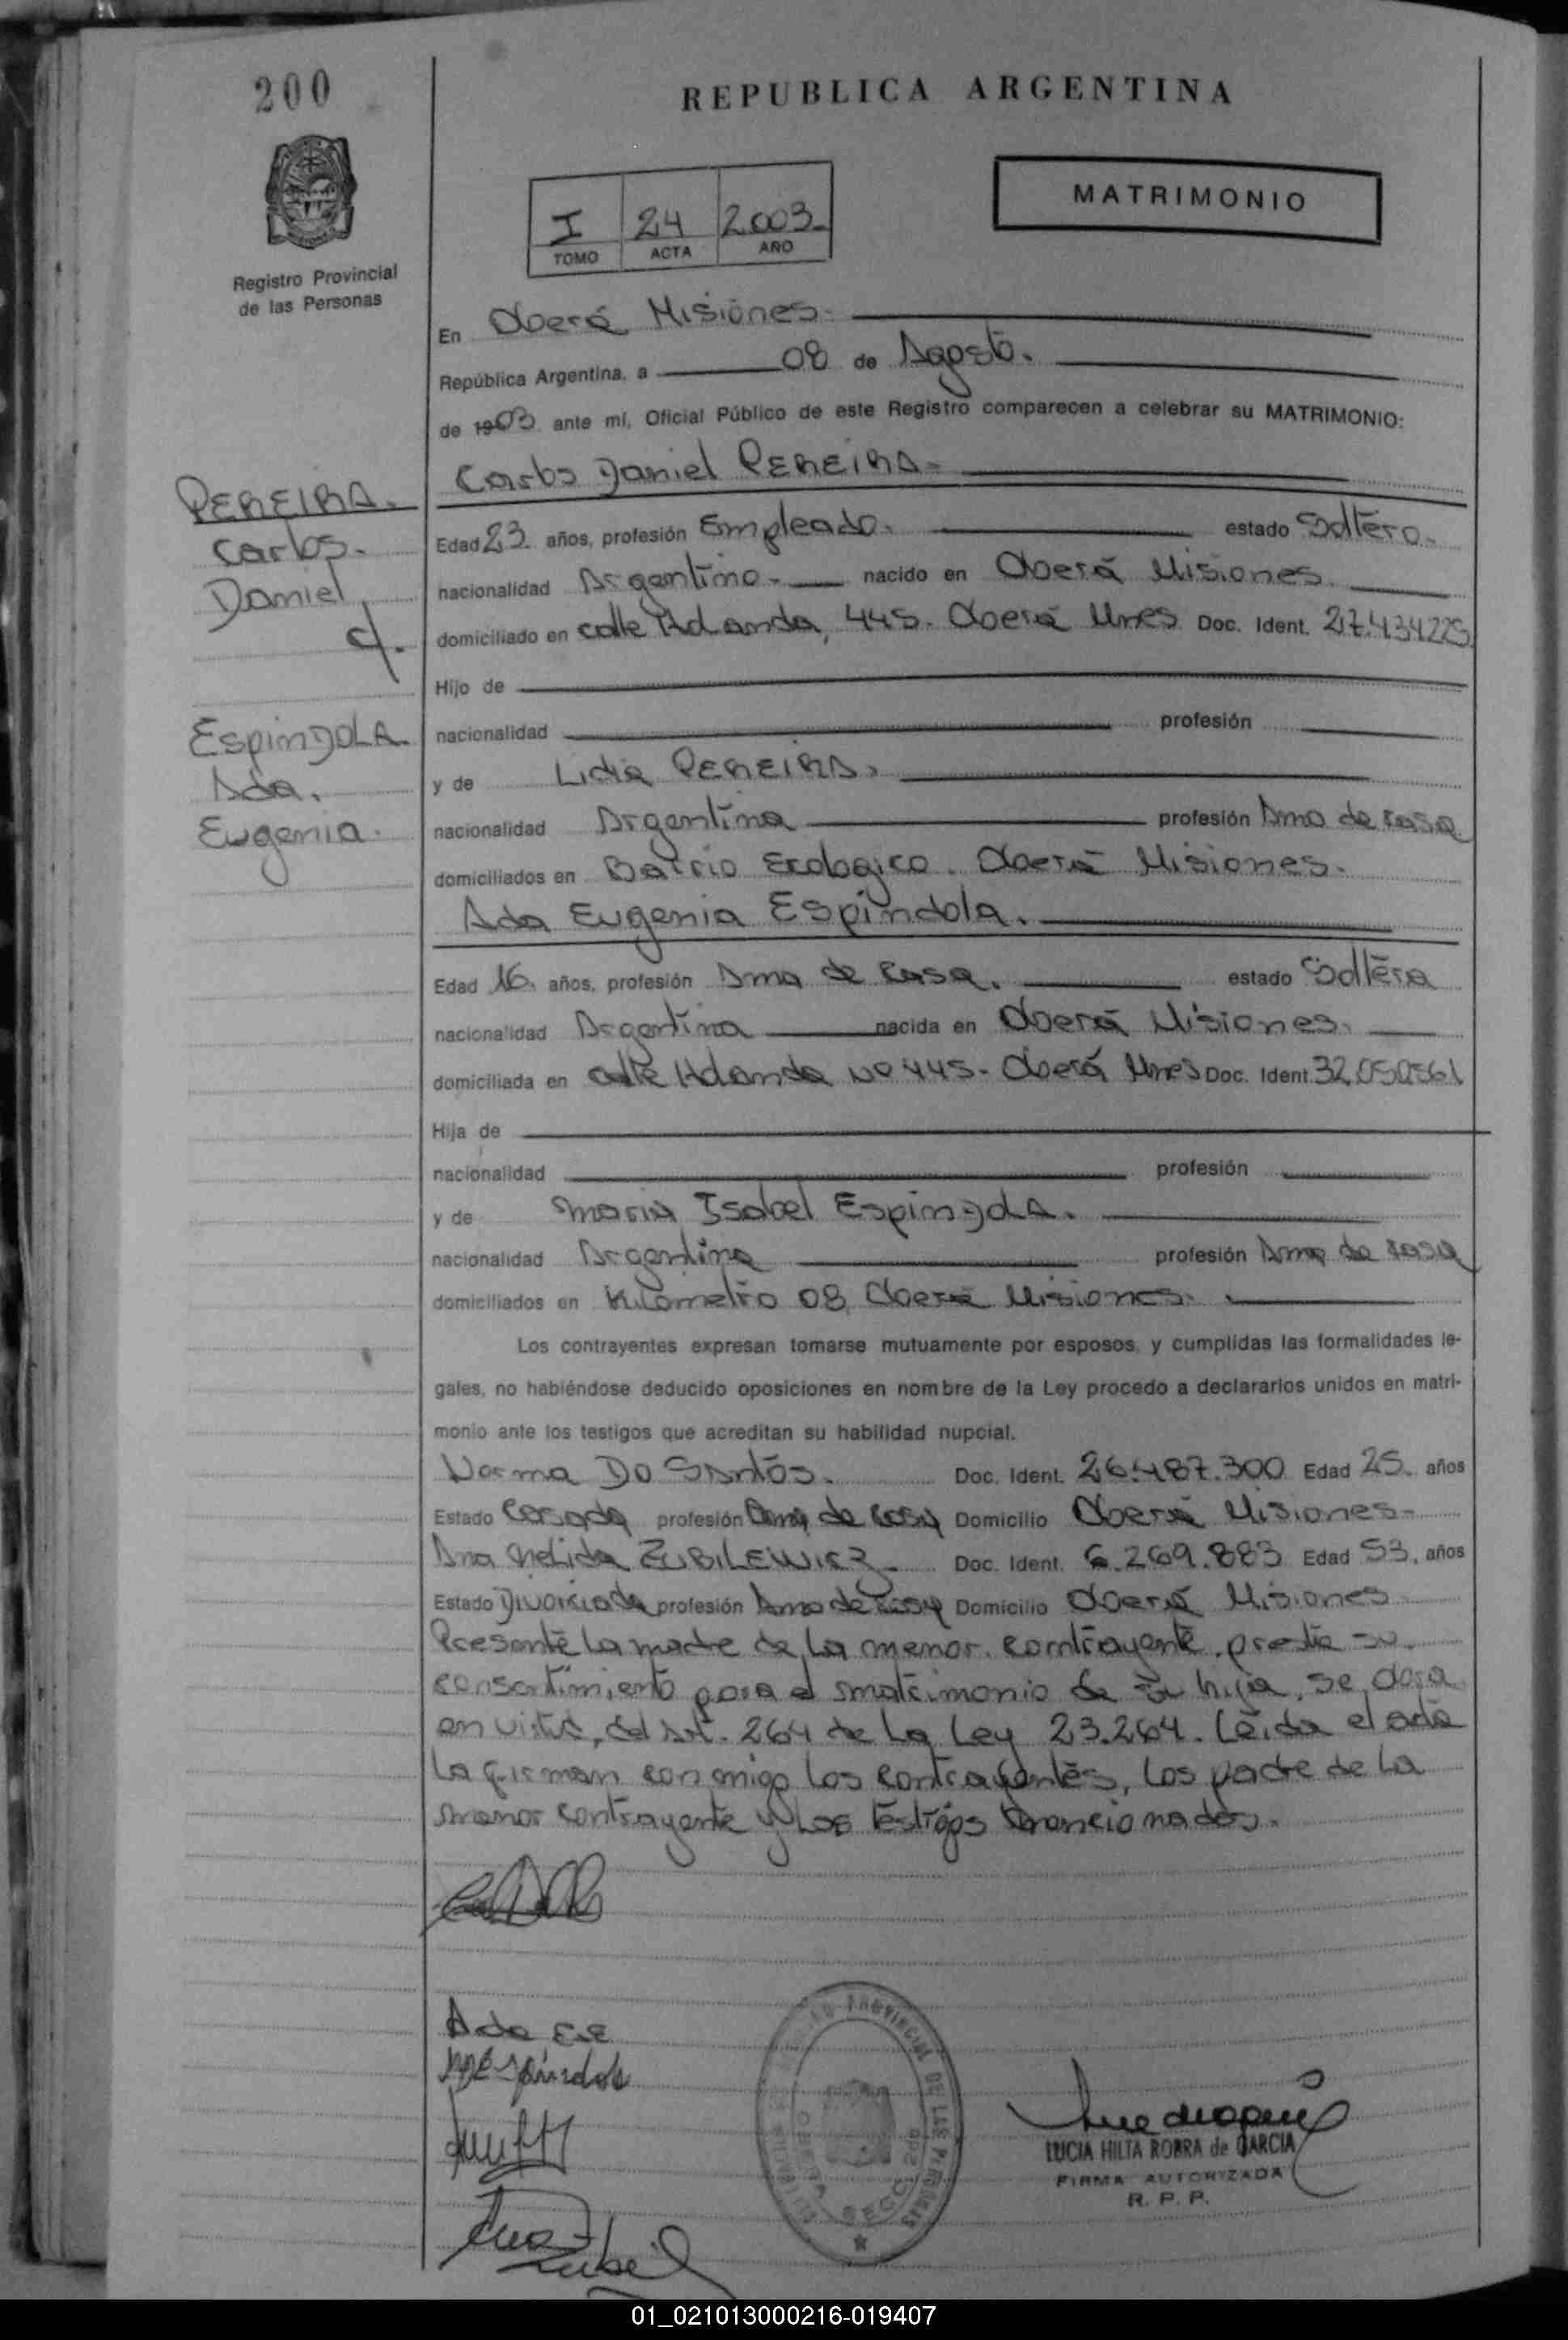 200
REPUBLICA ARGENTINA
MATRIMONIO
I 24 2.003-
TOMO ACTA AÑO
Registro Provincial
de las Personas
En Oberá Misiones-
República Argentina, a 08 de Agosto.
de 1903 ante mí, Oficial Público de este Registro comparecen a celebrar su MATRIMONIO:
Carlos Daniel PEREIRA-
PEREIRA.
Carlos.
Daniel
c/.
Edad 23 años, profesión Empleado. estado Soltero.
nacionalidad Argentino- nacido en Oberá Misiones
domiciliado en calle Holanda, 445. Oberá Mnes Doc. Ident. 27.434225
Hijo de
nacionalidad profesión
EspinDOLA
Ada.
Eugenia.
y de Lidia PEREIRA.
nacionalidad Argentina profesión Ama de casa
domiciliados en Barrio Ecologico. Oberá Misiones.
Ada Eugenia Espindola.
Edad 16. años, profesión Ama de casa. estado Soltera
nacionalidad Argentina nacida en Oberá Misiones.
domiciliada en calle Holanda Nº 445- Oberá Mnes Doc. Ident. 32.050561
Hija de
nacionalidad profesión
y de Maria Isabel EspinDOLA.
nacionalidad Argentina profesión Ama de casa
domiciliados en Kilometro 08, Oberá Misiones.
Los contrayentes expresan tomarse mutuamente por esposos, y cumplidas las formalidades le-
gales, no habiéndose deducido oposiciones en nombre de la Ley procedo a declararlos unidos en matri-
monio ante los testigos que acreditan su habilidad nupcial.
Norma Do Santos. Doc. Ident. 26.487.300 Edad 25. años
Estado Casada profesión Ama de casa Domicilio Oberá Misiones-
Ana Nelida ZUBILEWICZ- Doc. Ident. 6.269.883 Edad 53. años
Estado Divorciada profesión Ama de casa Domicilio Oberá Misiones
Presente la madre de la menor contrayente, presta su
consentimiento para el matrimonio de su hija, se deja
en virtud, del Art. 264 de la Ley 23.264. Leida el acta
la firman conmigo los contrayentes, los padre de la
menor contrayente y los testigos mencionados.
Ada E.E
LUCIA HILTA ROBRA de GARCIA
FIRMA AUTORIZADA
R. P. P.
PROVINCIAL DE LAS PERSONAS
OBERA SECC
01_021013000216-019407